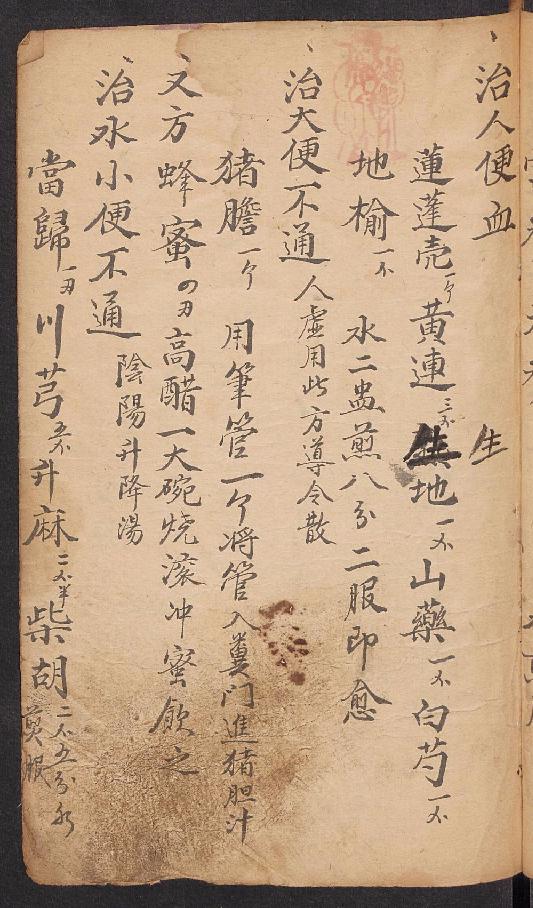 治人便血
蓮蓬壳一个黃連三不生地一不山藥一不白芍一不
生
地榆一不 水二盅煎八分二服即愈
治大便不通人虛用此方導令散
猪膽一个 用筆管一个將管入糞门進猪胆汁
又方蜂蜜四刃高醋一大碗烧滚冲蜜飲之
治水小便不通 陰陽升降湯
當歸一刃川芎五不升麻二不半柴胡二不五分水煎服